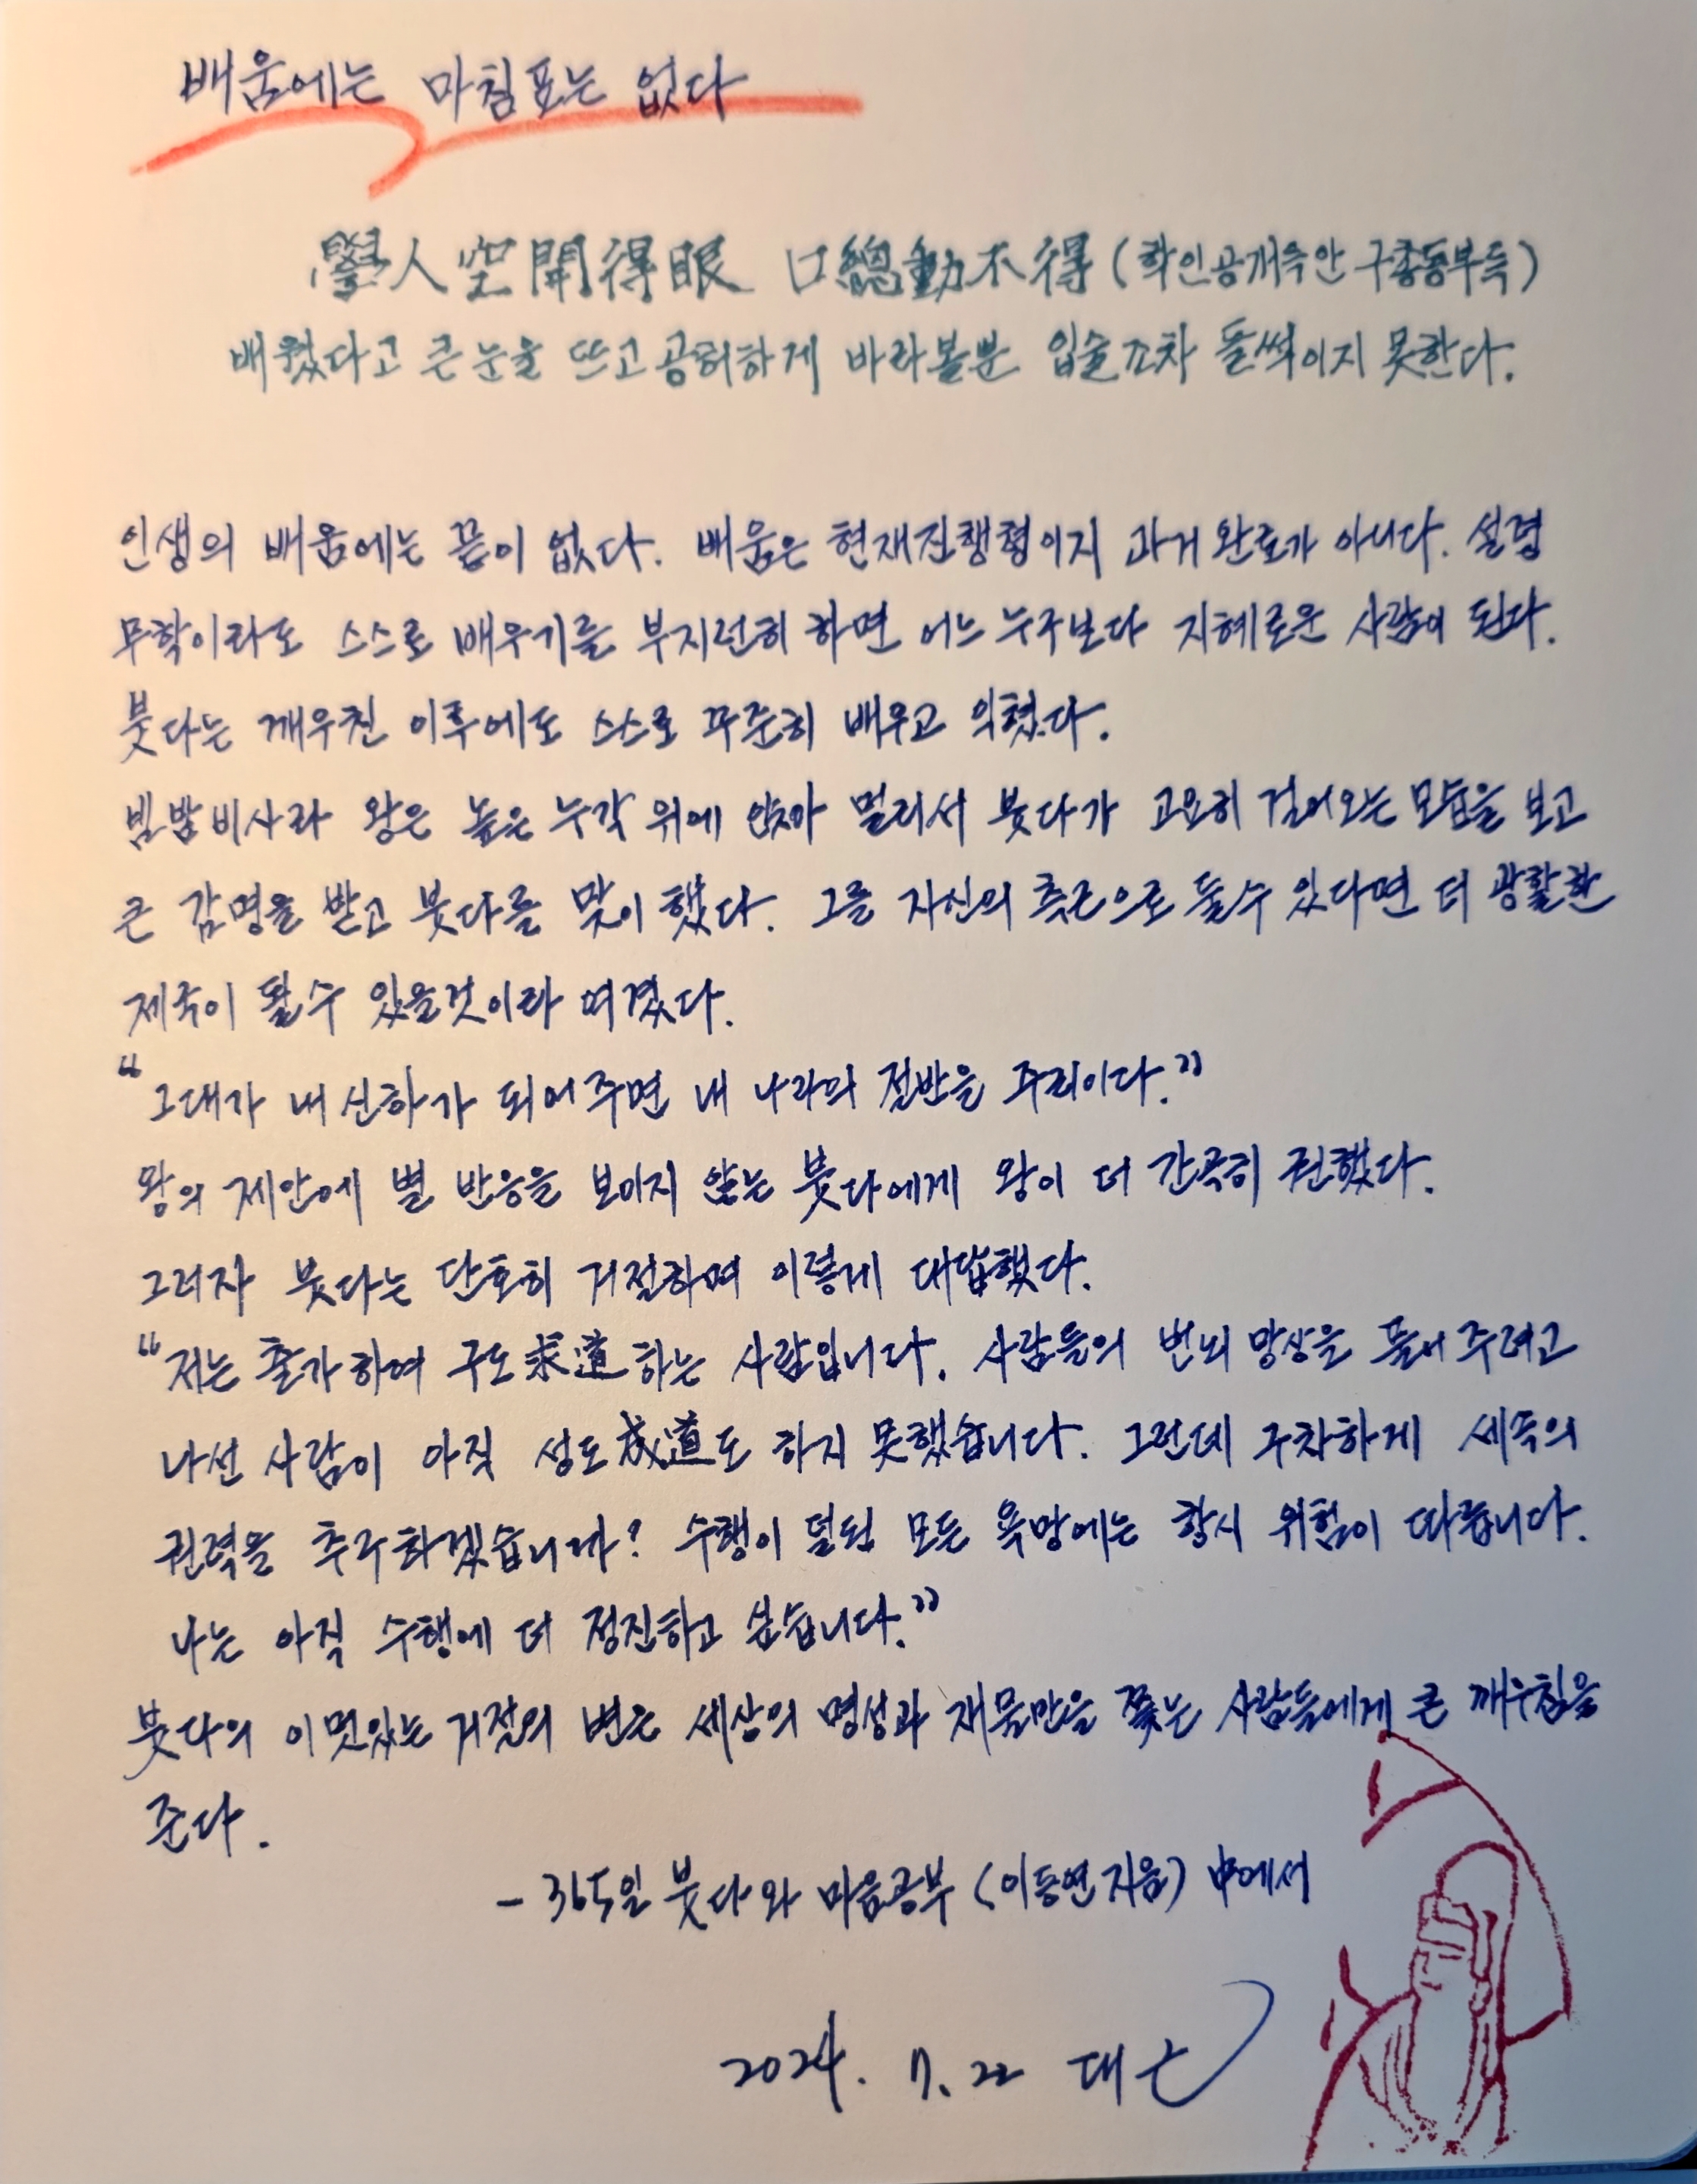 배움에는 마침표는 없다
學人空開得眼 口總動不得 (학인공개득안 구총동부득)
배웠다고 큰 눈을 뜨고 공허하게 바라볼뿐 입술조차 들썩이지 못한다.
인생의 배움에는 끝이 없다. 배움은 현재진행형이지 과거 완료가 아니다. 설령
무학이라도 스스로 배우기를 부지런히 하면 어느 누구보다 지혜로운 사람이 된다.
붓다는 깨우친 이후에도 스스로 꾸준히 배우고 익혔다.
빔밤비사라 왕은 높은 누각 위에 앉아 멀리서 붓다가 고요히 걸어오는 모습을 보고
큰 감명을 받고 붓다를 맞이 했다. 그를 자신의 측근으로 둘수 있다면 더 광활한
제국이 될수 있을것이라 여겼다.
“그대가 내 신하가 되어주면 내 나라의 절반을 주리이다.”
왕의 제안에 별 반응을 보이지 않는 붓다에게 왕이 더 간곡히 권했다.
그러자 붓다는 단호히 거절하며 이렇게 대답했다.
“저는 출가하여 구도求道하는 사람입니다. 사람들의 번뇌 망상을 풀어 주려고
나선 사람이 아직 성도成道도 하지 못했습니다. 그런데 구차하게 세속의
권력을 추구하겠습니까? 수행이 덜된 모든 욕망에는 항시 위험이 따릅니다.
나는 아직 수행에 더 정진하고 싶습니다.”
붓다의 이 멋있는 거절의 변은 세상의 명성과 재물만을 쫓는 사람들에게 큰 깨우침을
준다.
- 365일 붓다와 마음공부 (이동연 지음) 中에서
2024. 7. 22